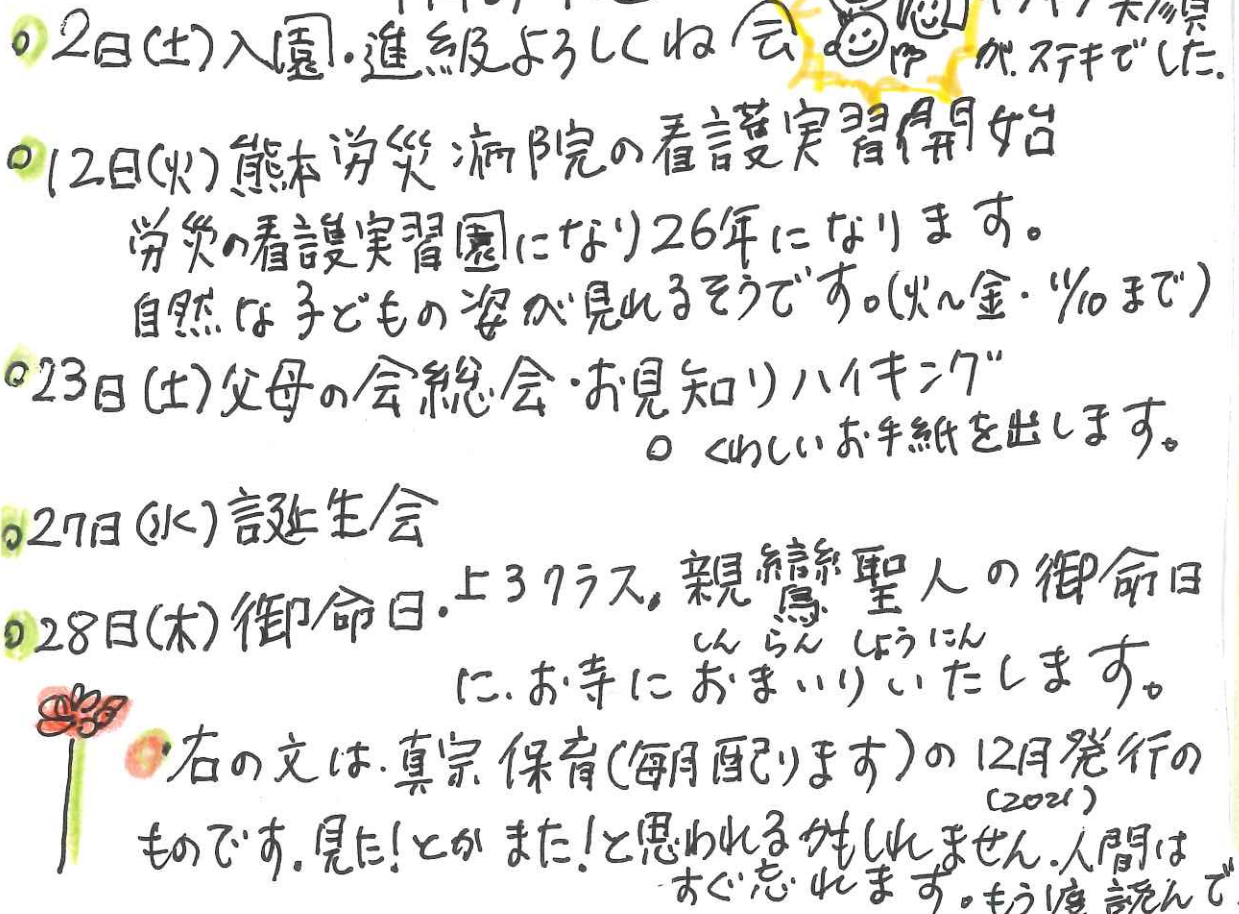 2日(土)入園・進級よろしくね会
が、ステキでした.
12日(火)熊本労災病院の看護実習開始
労災の看護実習園になり26年になります。
自然な子どもの姿が見れるそうです。(火〜金・11/10まで)
23日(土)父母の会総会・お見知りハイキング
○ くわしいお手紙を出します。
27日(水)誕生会
28日(木)御命日.上3クラス。親鸞聖人の御命日
しんらんしょうにん
に、お寺におまいりいたします。
右の文は.真宗保育(毎月配ります)の12月発行の
(2021)
ものです.見た!とかまた!と思われるかもしれません.人間は
すぐ忘れます。もう1度読んで